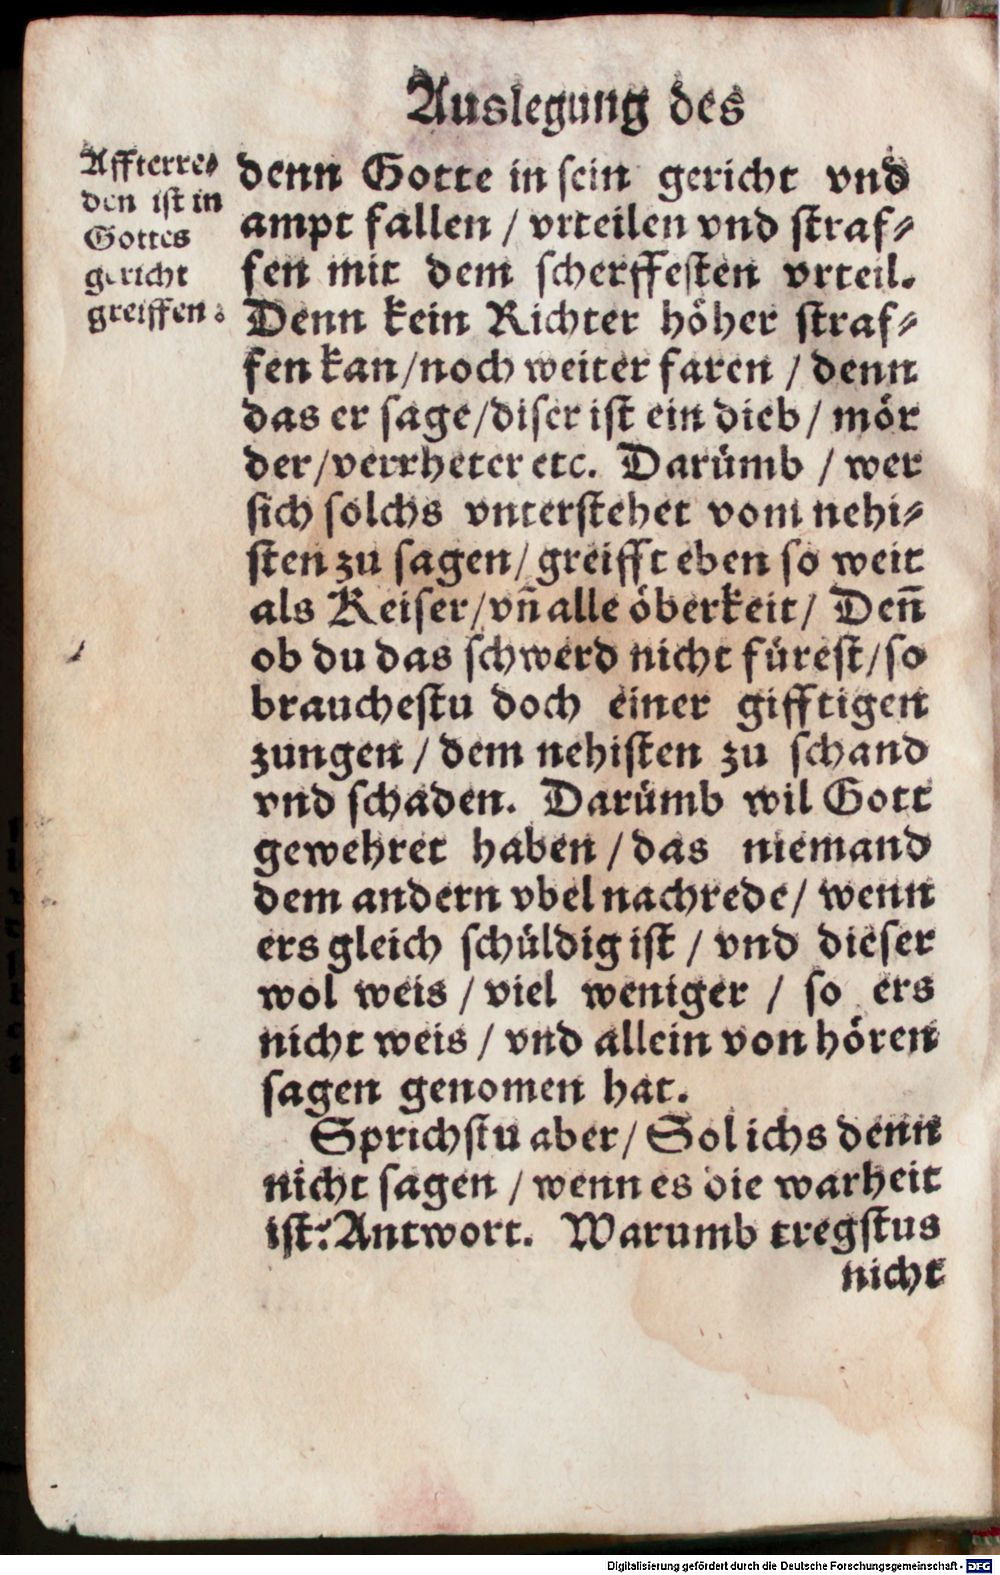 Auslegung des
Affterre⸗
den ist in
Gottes
gericht
greiffen.
denn Gotte in sein gericht vnd
ampt fallen / vrteilen vnd straf⸗
fen mit dem scherffesten vrteil.
Denn kein Richter höher straf⸗
fen kan/noch weiter faren / denn
das er sage/diser ist ein dieb/ mör
der/verrheter etc. Darümb / wer
sich solchs vnterstehet vom nehi⸗
sten zu sagen/ greifft eben so weit
als Keiser/vñ alle öberkeit/ Deñ
ob du das schwerd nicht fürest/so
brauchestu doch einer gifftigen
zungen / dem nehisten zu schand
vnd schaden. Darümb wil Gott
gewehret haben / das niemand
dem andern vbel nachrede/ wenn
ers gleich schüldig ist / vnd dieser
wol weis / viel weniger / so ers
nicht weis / vnd allein von hören
sagen genomen hat.
Sprichstu aber/ Sol ichs denn
nicht sagen / wenn es die warheit
ist? Antwort. Warumb tregstus
nicht
Digitalisierung gefördert durch die Deutsche Forschungsgemeinschaft - DFG